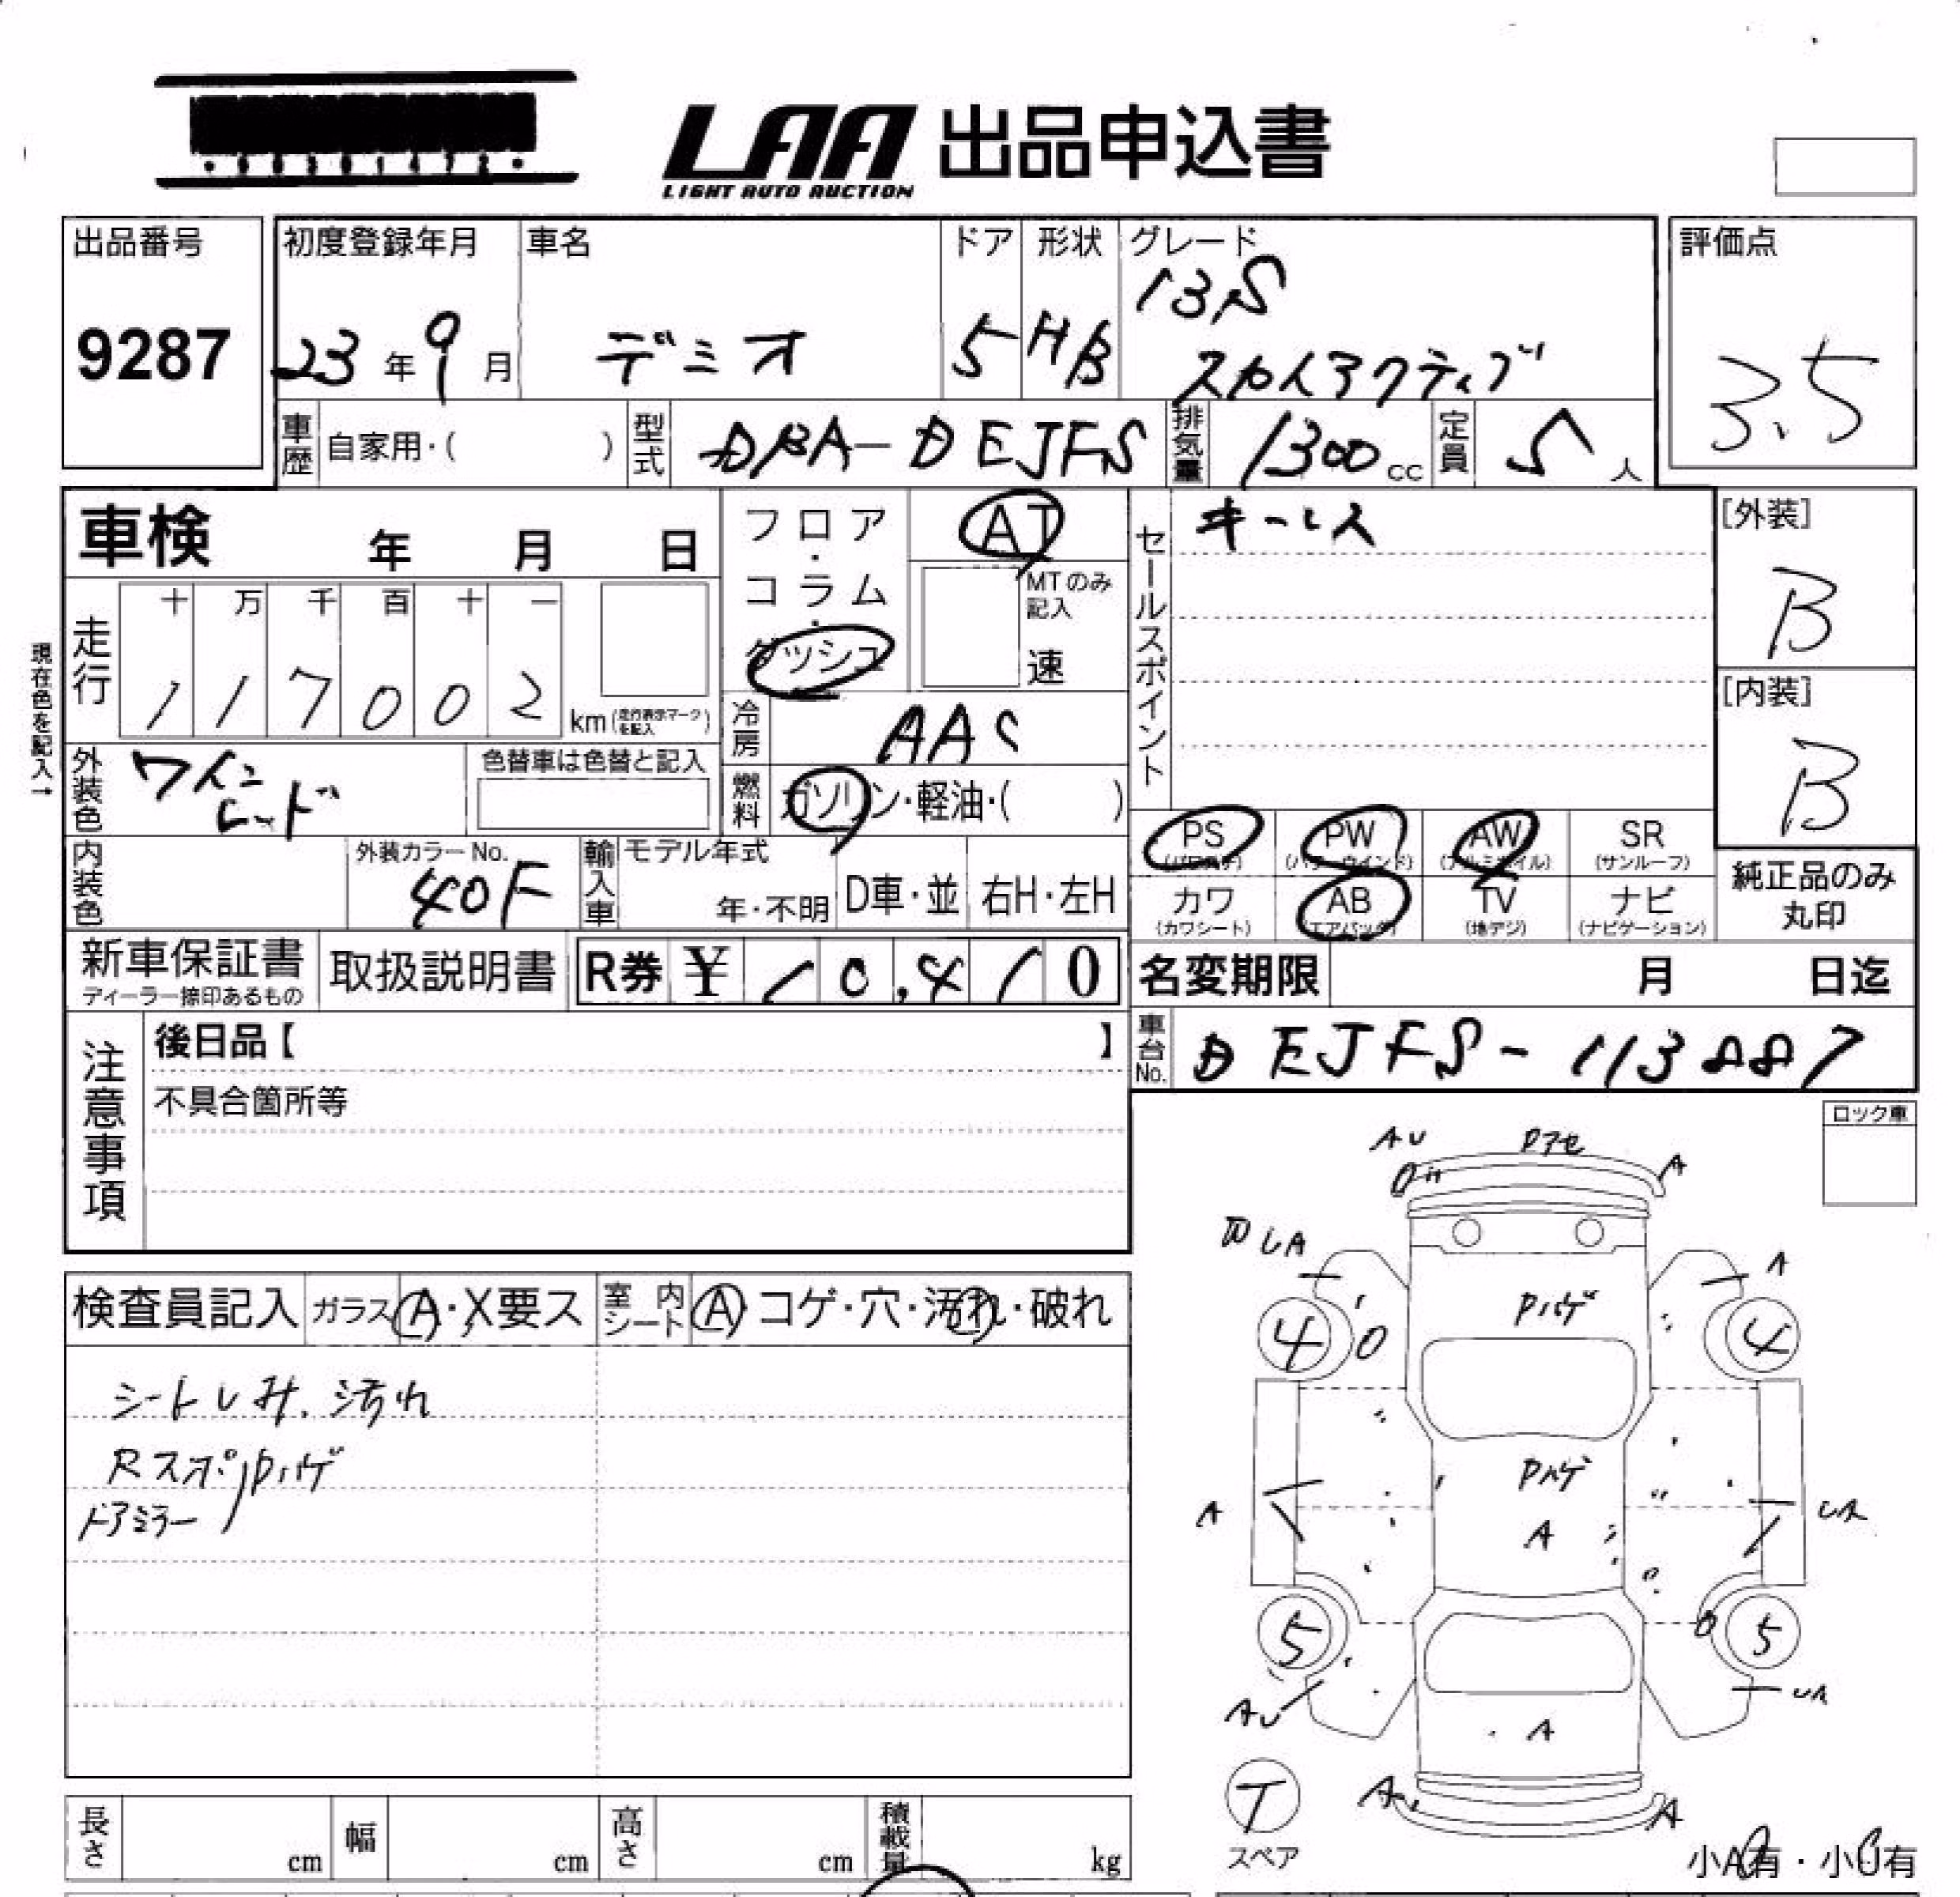 LAA 出品申込書
LIGHT AUTO AUCTION
出品番号 初度登録年月 車名 ドア 形状 グレード 評価点
9287 23年9月 デミオ 5 HB 13S
スカイアクティブ 3.5
車歴 自家用・( ) 型式 DBA-DEJFS 排気量 1300cc 定員 5人
車検 年 月 日
フロア・コラム・ダッシュ AT
MTのみ記入
速
セールスポイント キーレス
[外装]
B
現在色を記入→
走行 十 万 千 百 十 一
1 1 7 0 0 2 km(走行表示マークを記入)
冷房 AAC
[内装]
B
外装色 ワインレッド 色替車は色替と記入
燃料 ガソリン・軽油・( )
PS(パワステ) PW(パワーウインド) AW(アルミホイル) SR(サンルーフ)
内装色 外装カラーNo. 40F 輸入車 モデル年式 年・不明 D車・並 右H・左H
カワ(カワシート) AB(エアバッグ) TV(地デジ) ナビ(ナビゲーション)
純正品のみ丸印
新車保証書 ディーラー捺印あるもの 取扱説明書 R券 ¥10,410
名変期限 月 日迄
注意事項 後日品【 】
不具合箇所等
車台No. DEJFS-113887
ロック車
AU
A
A
A
Pハゲ
4 4
0
Pハゲ
A
A
5 5
AU
A
A
T
スペア
小A有・小U有
検査員記入 ガラス A・X要ス 室内シート A コゲ・穴・汚れ・破れ
シートしみ、汚れ
Rスポ Pハゲ
ドアミラー
長さ cm 幅 cm 高さ cm 積載量 kg